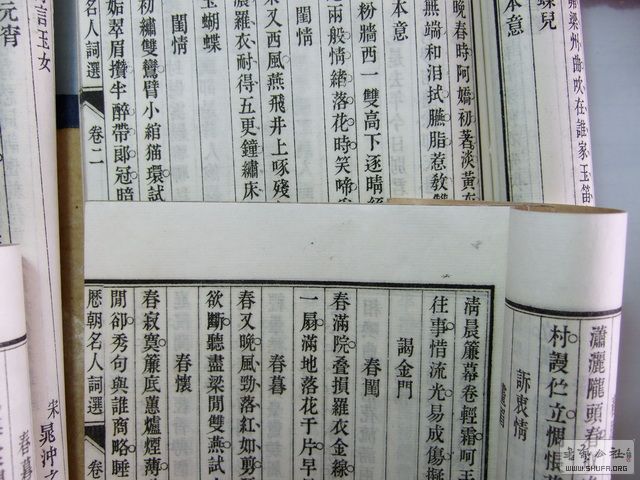 梁州曲吹在誰家玉笛
蝶兒
本意
晚春時阿嬌初著淡黃
無端和泪拭臙脂惹教雙
本意
粉牆西一雙高下逐晴
兩般情緒落花時笑啼
閨情
來又西風燕飛井上啄殘
濃羅衣耐得五更鐘繡床
玉蝴蝶
閨情
初繡雙鸞臂小綰猫環試
姤翠眉攢半醉帶郞冠暗
名人詞選 卷二
言玉女
元宵
宋晁沖
春暮
瀟灑隴頭春
村謾伫立惆悵
訴衷情
清晨簾幕卷輕霜呵
往事惜流光易成傷
謁金門
春閨
春滿院疊損羅衣金線
一扇滿地落花千片早
春暮
春又晚風勁落紅如剪
欲斷聽盡梁間雙燕試
春懷
春寂寞簾底蕙爐煙薄
閒卻秀句與誰商略睡
歷朝名人詞選 卷
WWW.SHUFA.ORG